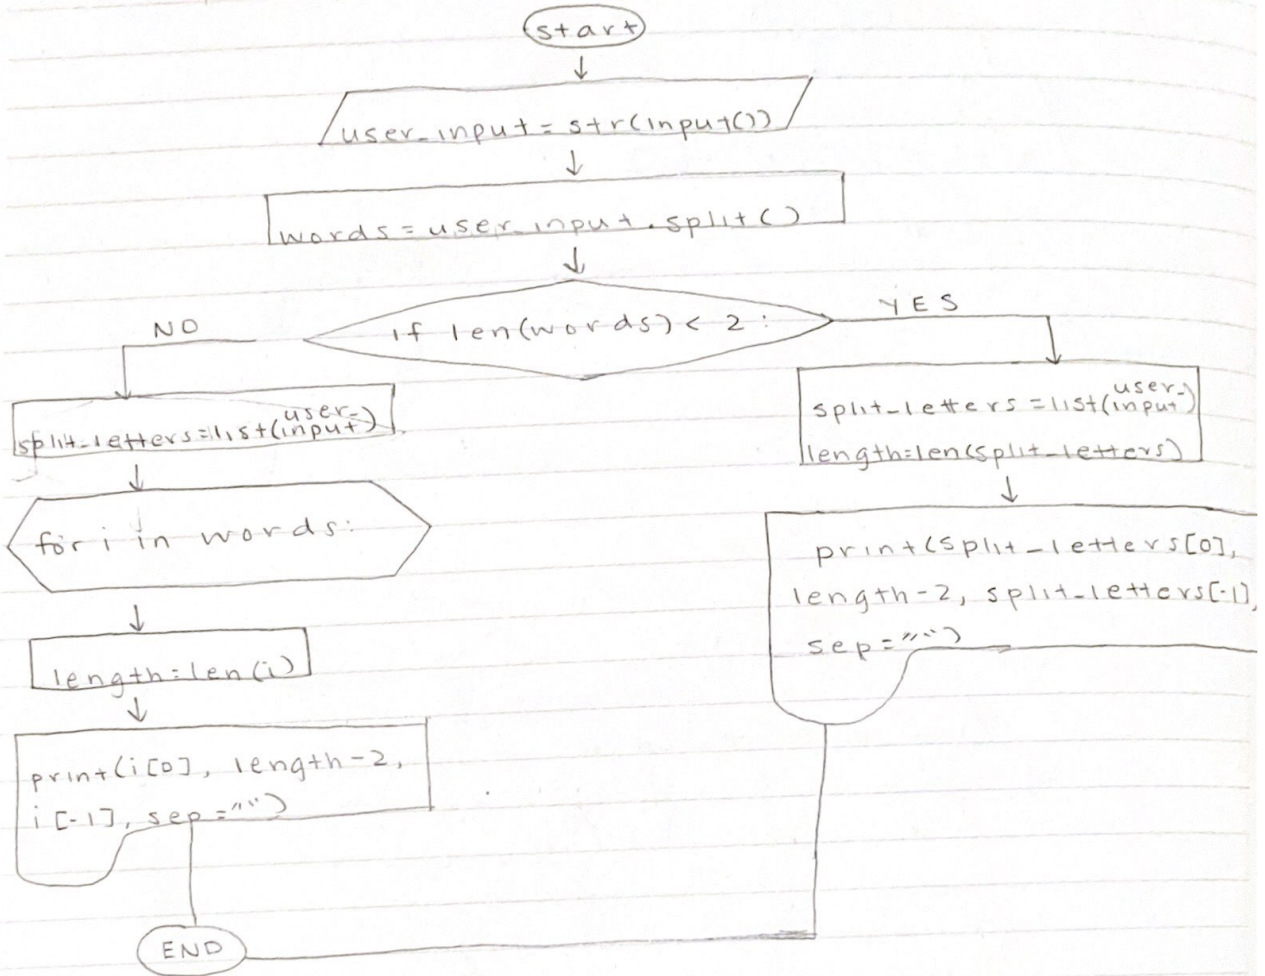 start
user_input = str(input())
words = user_input.split()
if len(words) < 2 :
NO
YES
split_letters=list(user_
input)
for i in words:
length=len(i)
print(i[0], length-2,
i[-1], sep="")
split_letters =list(user_
input)
length=len(split_letters)
print(split_letters[0],
length-2, split_letters[-1],
sep="")
END